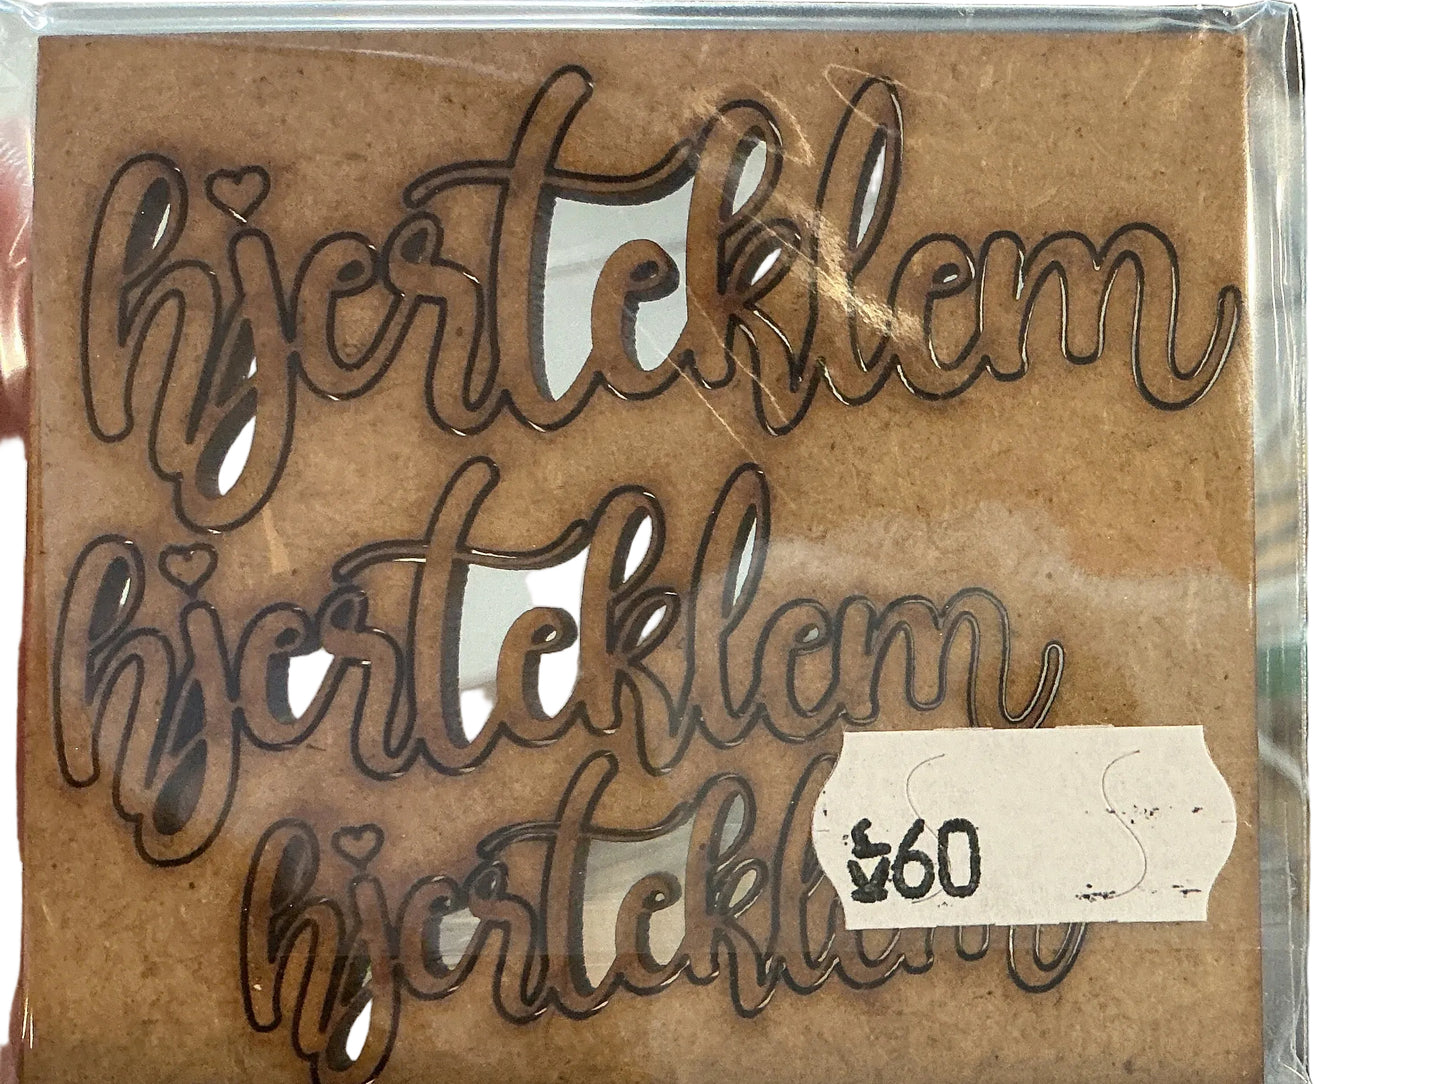 hjerteklem
hjerteklem
hjerteklem
60